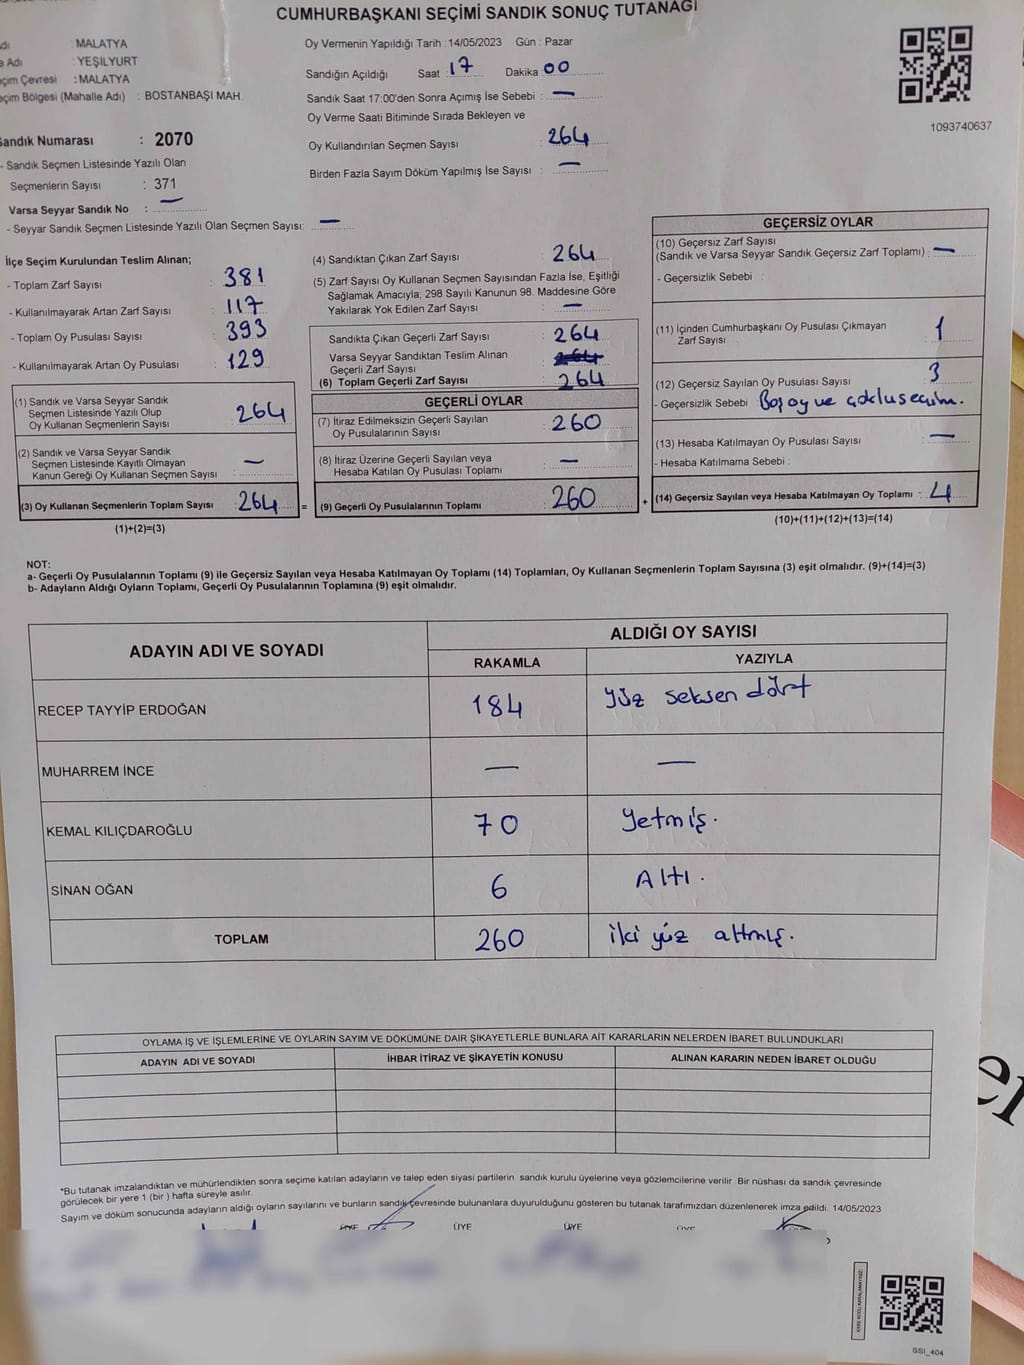 CUMHURBAŞKANI SEÇİMİ SANDIK SONUÇ TUTANAĞI
: MALATYA
Adı : YEŞİLYURT
çim Çevresi : MALATYA
eçim Bölgesi (Mahalle Adı) : BOSTANBAŞI MAH.
Sandık Numarası : 2070
- Sandık Seçmen Listesinde Yazılı Olan
Seçmenlerin Sayısı : 371
Varsa Seyyar Sandık No : —
- Seyyar Sandık Seçmen Listesinde Yazılı Olan Seçmen Sayısı: —
Oy Vermenin Yapıldığı Tarih : 14/05/2023 Gün : Pazar
Sandığın Açıldığı Saat 17 Dakika 00
Sandık Saat 17:00'den Sonra Açımış İse Sebebi : —
Oy Verme Saati Bitiminde Sırada Bekleyen ve
Oy Kullandırılan Seçmen Sayısı : 264
Birden Fazla Sayım Döküm Yapılmış İse Sayısı : —
1093740637
İlçe Seçim Kurulundan Teslim Alınan;
- Toplam Zarf Sayısı : 381
- Kullanılmayarak Artan Zarf Sayısı : 117
- Toplam Oy Pusulası Sayısı : 393
- Kullanılmayarak Artan Oy Pusulası : 129
(1) Sandık ve Varsa Seyyar Sandık
Seçmen Listesinde Yazılı Olup
Oy Kullanan Seçmenlerin Sayısı : 264
(2) Sandık ve Varsa Seyyar Sandık
Seçmen Listesinde Kayıtlı Olmayan
Kanun Gereği Oy Kullanan Seçmen Sayısı : —
(3) Oy Kullanan Seçmenlerin Toplam Sayısı : 264 =
(1)+(2)=(3)
(4) Sandıktan Çıkan Zarf Sayısı : 264
(5) Zarf Sayısı Oy Kullanan Seçmen Sayısından Fazla İse, Eşitliği
Sağlamak Amacıyla, 298 Sayılı Kanunun 98. Maddesine Göre
Yakılarak Yok Edilen Zarf Sayısı : —
Sandıkta Çıkan Geçerli Zarf Sayısı : 264
Varsa Seyyar Sandıktan Teslim Alınan
Geçerli Zarf Sayısı :
(6) Toplam Geçerli Zarf Sayısı : 264
GEÇERLİ OYLAR
(7) İtiraz Edilmeksizin Geçerli Sayılan
Oy Pusulalarının Sayısı : 260
(8) İtiraz Üzerine Geçerli Sayılan veya
Hesaba Katılan Oy Pusulası Toplamı : —
(9) Geçerli Oy Pusulalarının Toplamı : 260 +
GEÇERSİZ OYLAR
(10) Geçersiz Zarf Sayısı
(Sandık ve Varsa Seyyar Sandık Geçersiz Zarf Toplamı) : —
- Geçersizlik Sebebi :
(11) İçinden Cumhurbaşkanı Oy Pusulası Çıkmayan
Zarf Sayısı : 1
(12) Geçersiz Sayılan Oy Pusulası Sayısı : 3
- Geçersizlik Sebebi : Boş oy ve çoklu seçim.
(13) Hesaba Katılmayan Oy Pusulası Sayısı : —
- Hesaba Katılmama Sebebi :
(14) Geçersiz Sayılan veya Hesaba Katılmayan Oy Toplamı : 4
(10)+(11)+(12)+(13)=(14)
NOT:
a- Geçerli Oy Pusulalarının Toplamı (9) ile Geçersiz Sayılan veya Hesaba Katılmayan Oy Toplamı (14) Toplamları, Oy Kullanan Seçmenlerin Toplam Sayısına (3) eşit olmalıdır. (9)+(14)=(3)
b- Adayların Aldığı Oyların Toplamı, Geçerli Oy Pusulalarının Toplamına (9) eşit olmalıdır.
ADAYIN ADI VE SOYADI ALDIĞI OY SAYISI
RAKAMLA YAZIYLA
RECEP TAYYİP ERDOĞAN 184 Yüz seksen dört
MUHARREM İNCE — —
KEMAL KILIÇDAROĞLU 70 Yetmiş.
SİNAN OĞAN 6 Altı.
TOPLAM 260 iki yüz altmış.
OYLAMA İŞ VE İŞLEMLERİNE VE OYLARIN SAYIM VE DÖKÜMÜNE DAİR ŞİKAYETLERLE BUNLARA AİT KARARLARIN NELERDEN İBARET BULUNDUKLARI
ADAYIN ADI VE SOYADI İHBAR İTİRAZ VE ŞİKAYETİN KONUSU ALINAN KARARIN NEDEN İBARET OLDUĞU
*Bu tutanak imzalandıktan ve mühürlendikten sonra seçime katılan adayların ve talep eden siyasi partilerin sandık kurulu üyelerine veya gözlemcilerine verilir. Bir nüshası da sandık çevresinde
görülecek bir yere 1 (bir) hafta süreyle asılır.
Sayım ve döküm sonucunda adayların aldığı oyların sayılarını ve bunların sandık çevresinde bulunanlara duyurulduğunu gösteren bu tutanak tarafımızdan düzenlenerek imza edildi. 14/05/2023
ÜYE ÜYE ÜYE ÜYE
SSI_404